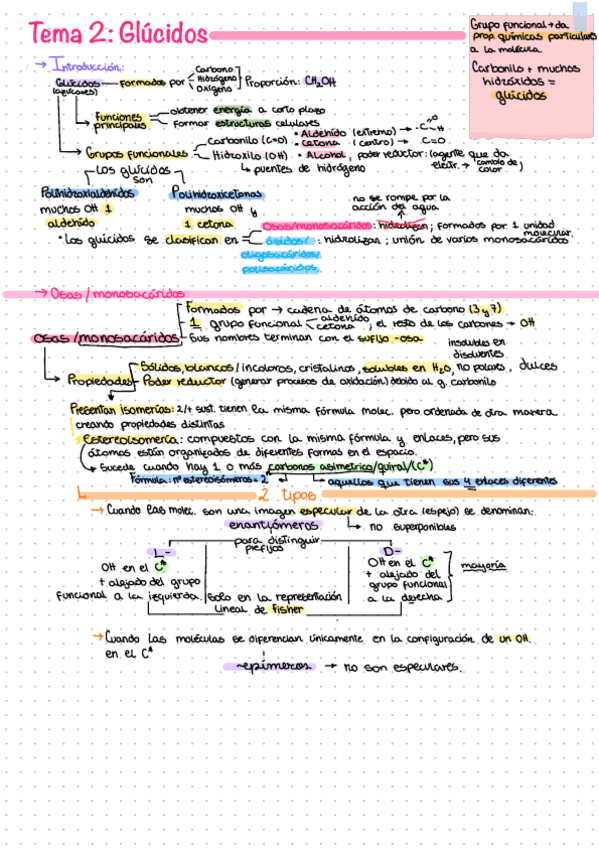 Tema 2: Glúcidos
Grupo funcional → da
prop. químicas particulares
a la molécula.
Carbonilo + muchos
hidróxidos =
glúcidos
→ Introducción:
Glúcidos (azúcares) — Formados por Carbono Hidrógeno Oxígeno } Proporción: CH2OH
Funciones principales
obtener energía a corto plazo
formar estructuras celulares
Grupos funcionales
Carbonilo (C=O) • Aldehído (extremo) → -C=O-H
• Cetona (centro) → C=O
Hidroxilo (OH) • Alcohol, poder reductor: (agente que da
electr. → cambio de color)
puentes de hidrógeno
Los glúcidos son
Polihidroxialdehídos
muchos OH 1
aldehído
Polihidroxicetonas
muchos OH y
1 cetona
no se rompe por la
acción del agua
• Los glúcidos se clasifican en = Osas/monosacáridos: hidrolizan; formados por 1 unidad
molecular.
ósidos/: hidrolizan; unión de varios monosacáridos
oligosacáridos/
polisacáridos.
→ Osas/monosacáridos
osas/monosacáridos
Formados por → cadena de átomos de carbono (3 y 7)
1 grupo funcional aldehído cetona; el resto de los carbones → OH
Sus nombres terminan con el sufijo -osa.
insolubles en
disolventes
Propiedades
Sólidos, blancos/incoloros, cristalinos, solubles en H2O, no polares, dulces
Poder reductor (generar procesos de oxidación) debido al g. carbonilo
Presentan isomerías: 2/+ sust. tienen la misma fórmula molec. pero ordenada de otra manera
creando propiedades distintas
Estereoisomería: compuestos con la misma fórmula y enlaces, pero sus
átomos están organizados de diferentes formas en el espacio.
Sucede cuando hay 1 o más carbonos asimetrico/quiral/(C*)
Fórmula: nº estereoisómeros = 2
aquellos que tienen sus 4 enlaces diferentes
2 tipos
→ Cuando las molec. son una imagen especular de la otra (espejo) se denominan:
enantiómeros → no superponibles
para distinguir
prefijos
L-
OH en el C*
+ alejado del grupo
funcional a la izquierda.
Solo en la representación
lineal de fisher
D-
OH en el C*
+ alejado del
grupo funcional
a la derecha
mayoría
→ Cuando las moléculas se diferencian únicamente en la configuración de un OH.
en el C*
epímeros → no son especulares.